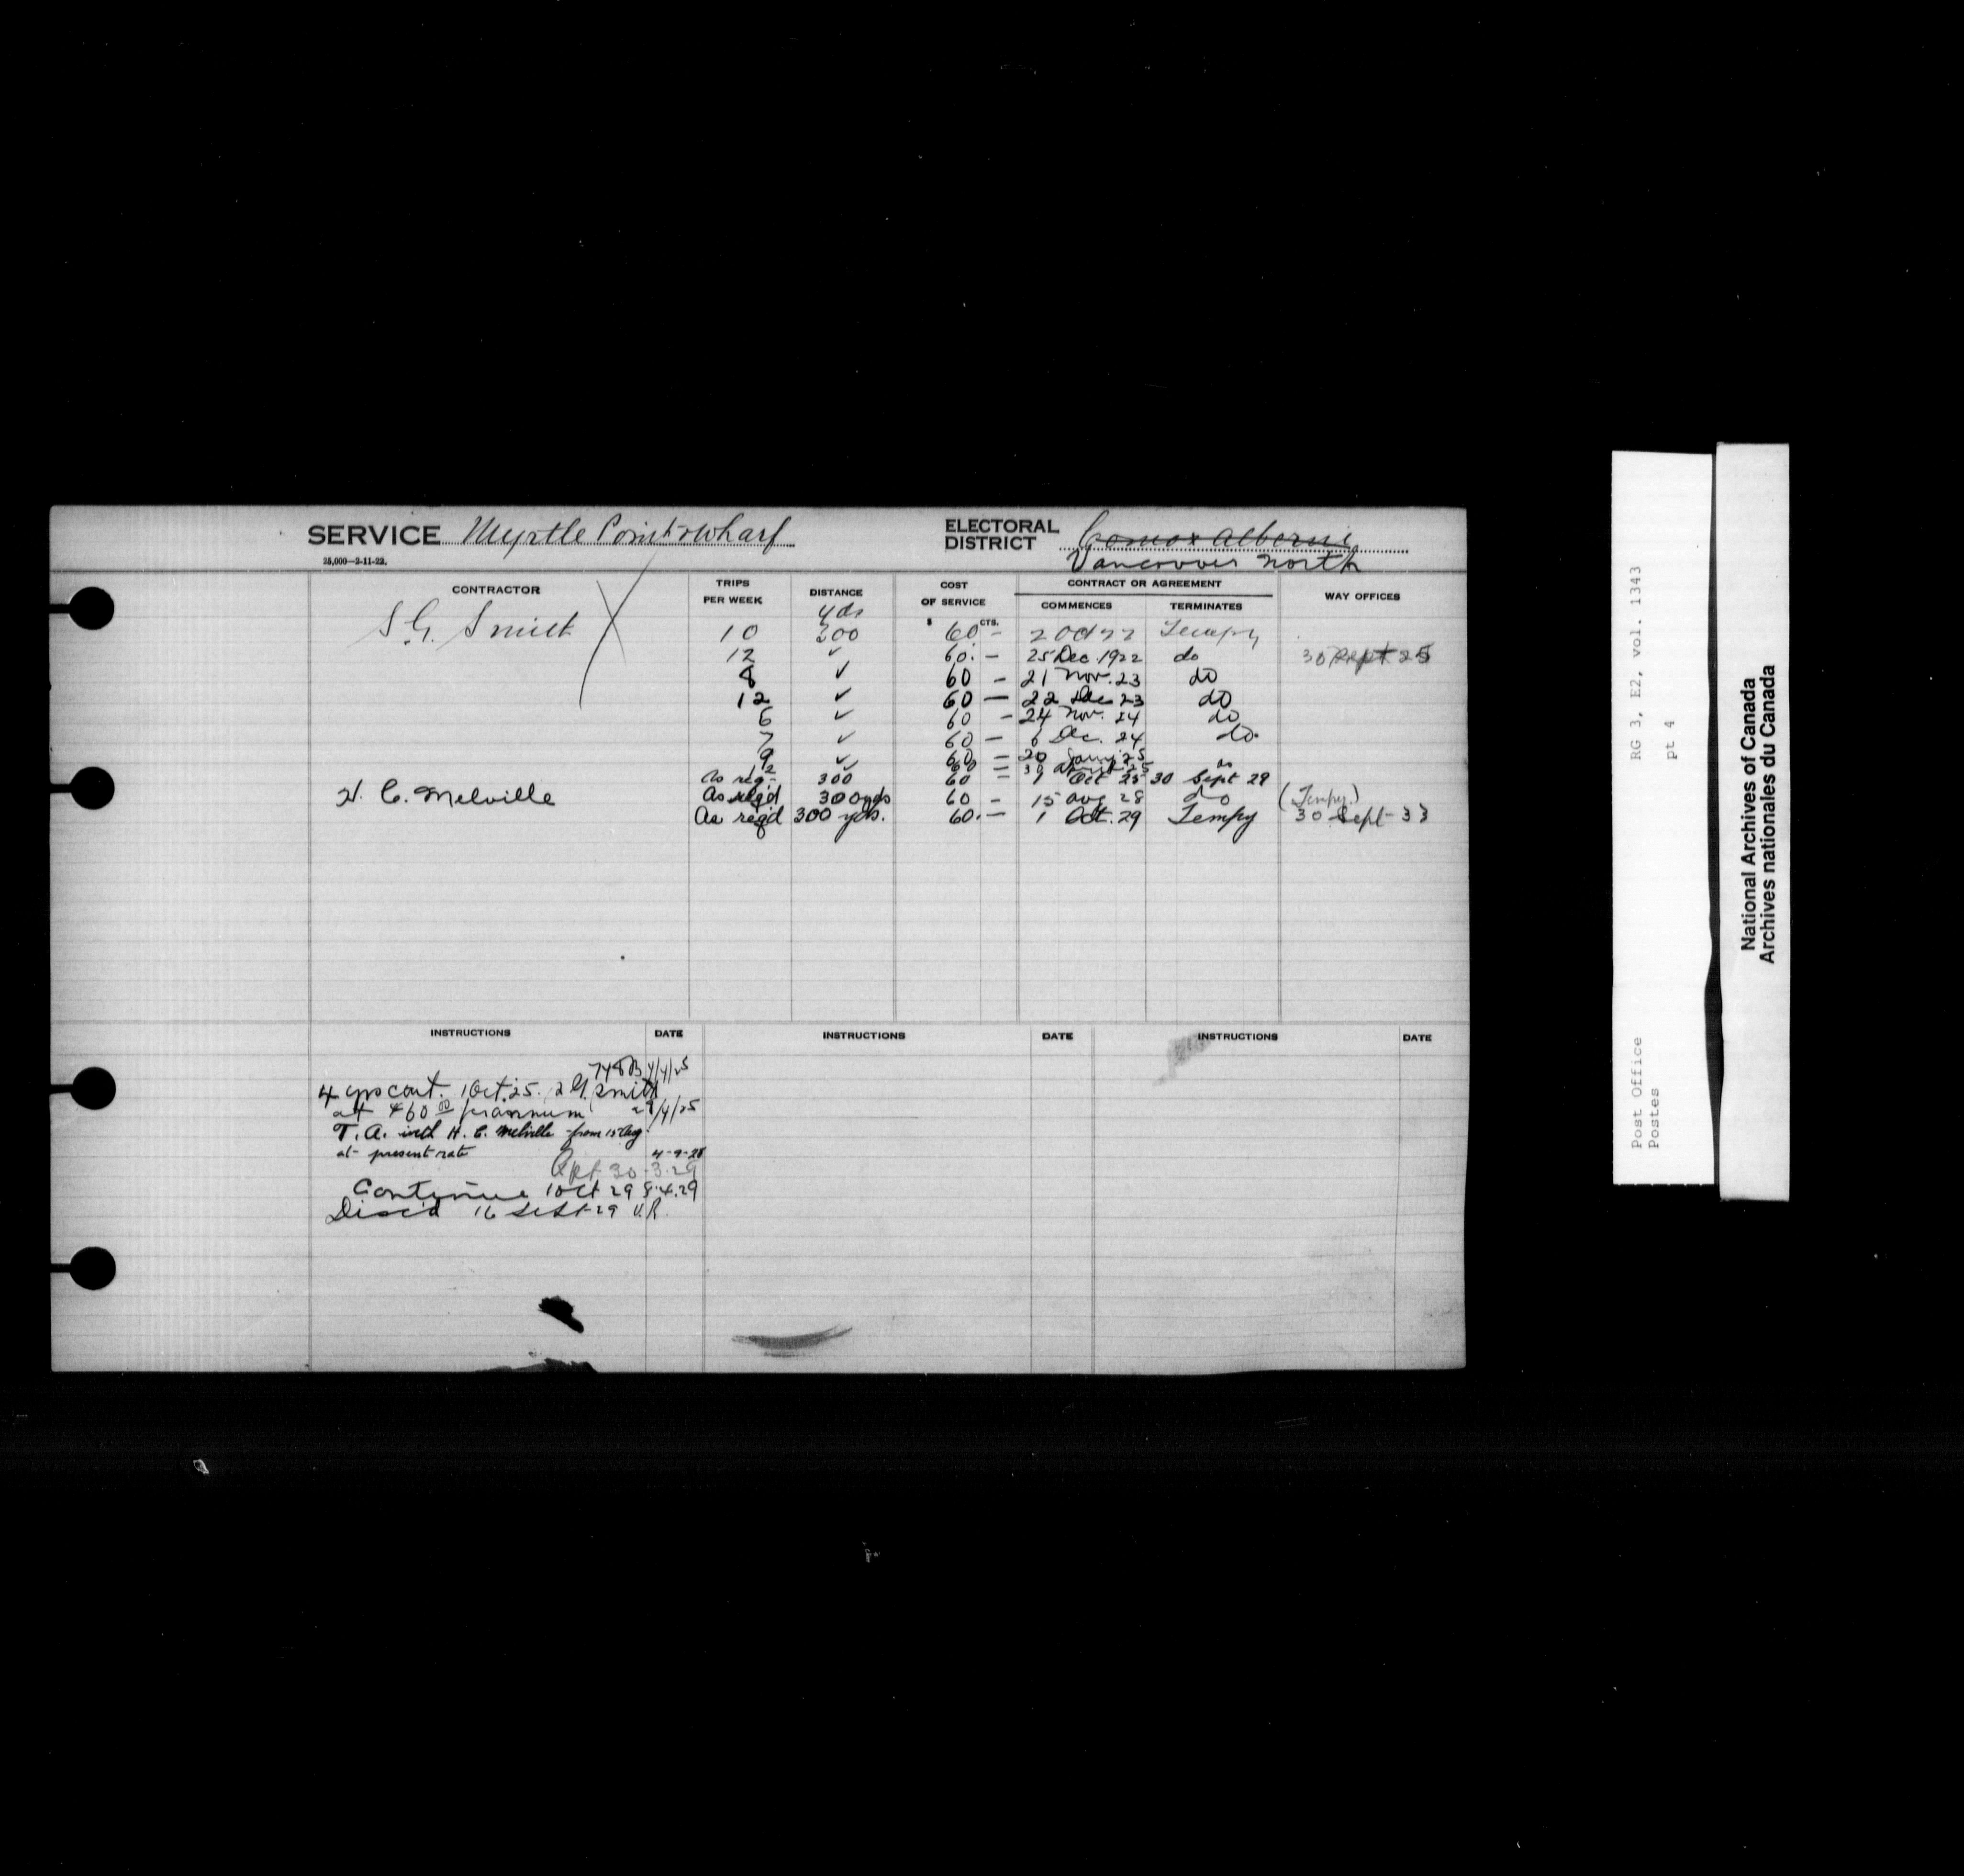 SERVICE Myrtle Point & Wharf
25,000—2-11-22.
ELECTORAL DISTRICT Comox Alberni
Vancouver North
CONTRACTOR TRIPS PER WEEK DISTANCE COST OF SERVICE CONTRACT OR AGREEMENT COMMENCES TERMINATES WAY OFFICES
yds
$ CTS.
S. G. Smith 10 300 60 – 2 Oct 22 Tempy
12 ✓ 60. – 25 Dec. 1922 do 30 Sept 25
8 ✓ 60 – 21 Nov. 23 do
12 ✓ 60 – 22 Dec 23 do
6 ✓ 60 – 24 Nov. 24 do
7 ✓ 60 – 6 Dec. 24 do.
9 ✓ 60 – 20 Jany 25
12 60 – 30 25 do
As req 300 60 – 1 Oct 25 30 Sept 29
H. C. Melville As req'd 300 yds 60 – 15 Aug 28 do (Tempy.)
As req'd 300 yds. 60. – 1 Oct. 29 Tempy 30 Sept - 33
INSTRUCTIONS DATE INSTRUCTIONS DATE INSTRUCTIONS DATE
748B 4/4/25
4 yrs cont. 1 Oct. 25. S G. Smith
at $60 00 per annum 29/4/25
T. A. with H. C. Melville from 15 Aug.
at present rate 4-9-28
30-3-29
Continue 1 Oct 29 8.4.29
Disc'd 16 Sept-29 V.R.
RG 3, E2, vol. 1343
pt 4
Post Office
Postes
National Archives of Canada
Archives nationales du Canada